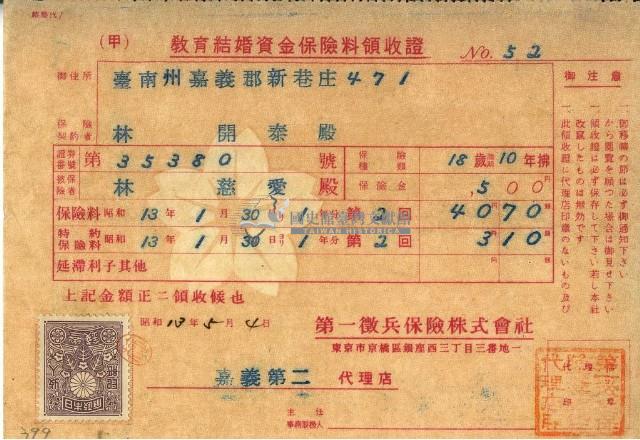 (甲) 教育結婚資金保險料領收證 No. 52
御住所 臺南州嘉義郡新巷庄471
保險契約者 林開泰殿
證券番號 第35380號 保險種類 18歲滿期10年拂
被保險者 林慈愛殿 保險金 500
保險料 昭和13年1月30日ヨリ1年分 第2回 4070
特約保險料 昭和13年1月30日ヨリ1年分 第2回 310
延滯利子其他
上記金額正ニ領收候也
昭和13年5月4日
第一徵兵保險株式會社
東京市京橋區銀座西三丁目三番地一
嘉義第二 代理店
主任
事務取扱人
御注意
一、御移轉の節は必ず御通知下さい
一、領收證は必ず保存して下さい若し本社から閲覽を願つた場合は御見せ下さい
一、此領收證に代理店印章のないもの及び改竄したものは無効です
國史館臺灣文獻館
TAIWAN HISTORICA
代理店印章
399